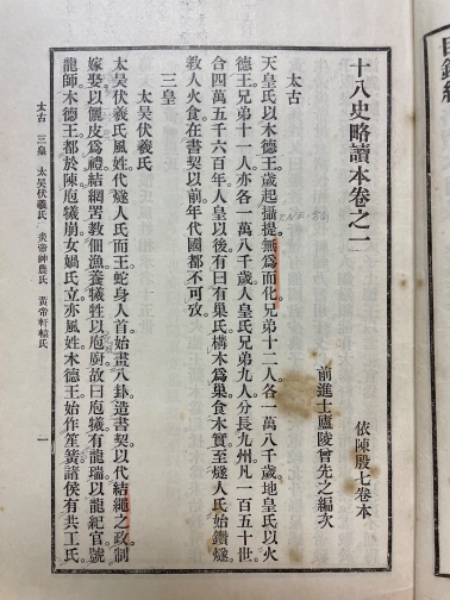 十八史略讀本卷之一
依陳殷七卷本
前進士廬陵曾先之編次
太古
天皇氏以木德王。歲起攝提。無爲而化。兄弟十二人各一萬八千歲。地皇氏以火
德王。兄弟十一人。亦各一萬八千歲。人皇氏兄弟九人。分長九州。凡一百五十世。
合四萬五千六百年。人皇以後。有曰有巢氏。構木爲巢。食木實。至燧人氏。始鑽燧。
教人火食。在書契以前。年代國都不可攷。
三皇
太昊伏羲氏
太昊伏羲氏。風姓。代燧人氏而王。蛇身人首。始畫八卦。造書契。以代結繩之政。制
嫁娶。以儷皮爲禮。結網罟。教佃漁。養犧牲。以庖廚。故曰庖犧。有龍瑞。以龍紀官。號
龍師。木德王。都於陳。庖犧崩。女媧氏立。亦風姓。木德王。始作笙簧。諸侯有共工氏。
太古 三皇 太昊伏羲氏 炎帝神農氏 黃帝軒轅氏
一